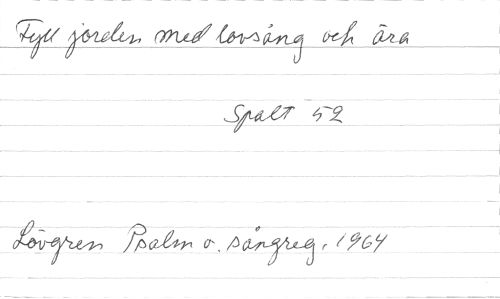 Fyll jorden med lovsång och ära
Spalt 52
Lövgren Psalm o. sångreg. 1964